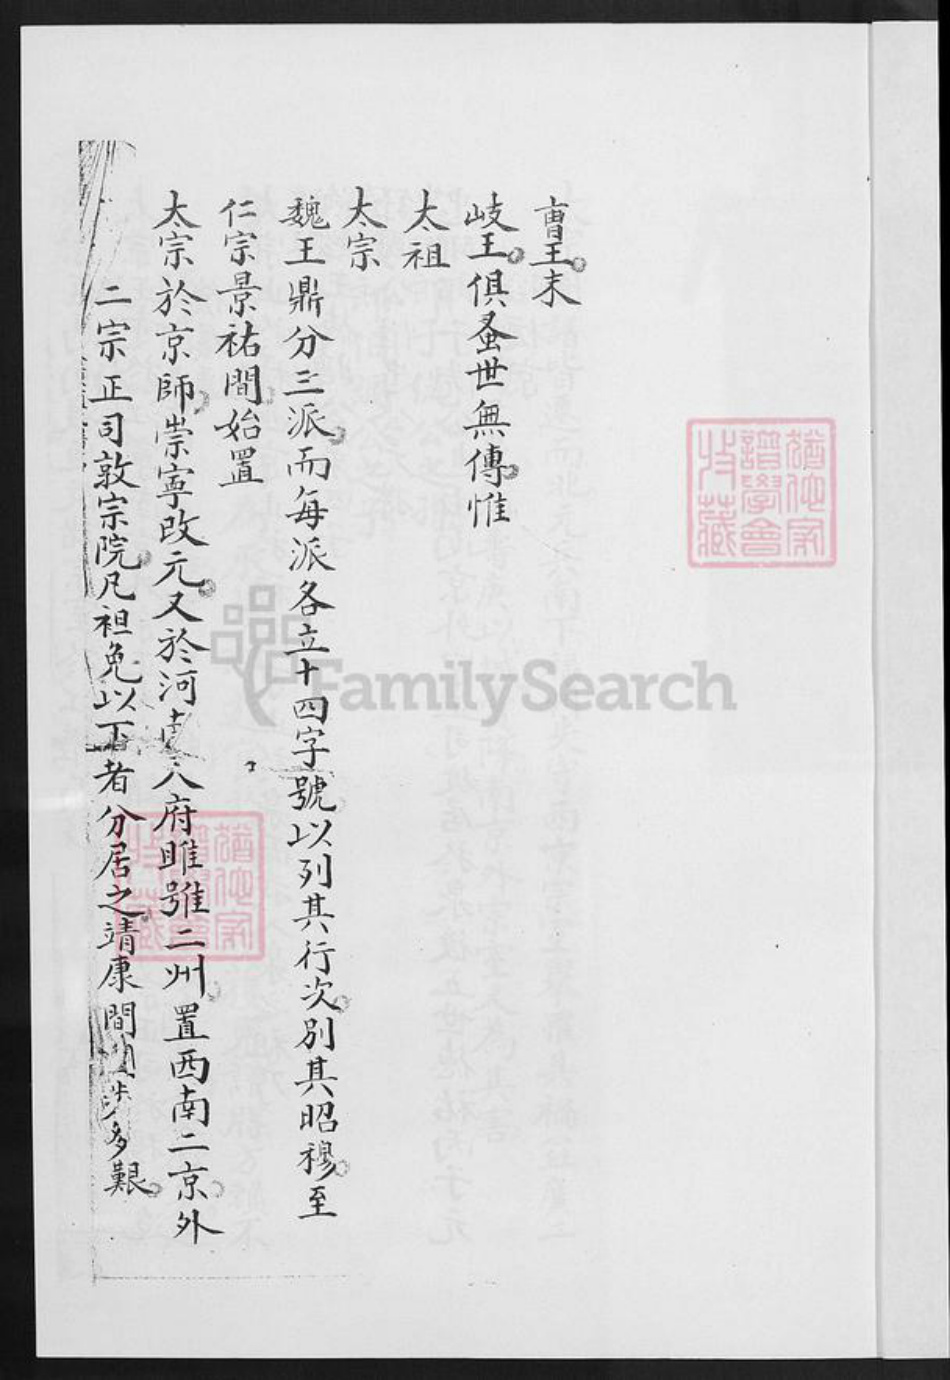 曹王末
岐王俱蚤世無傳惟
太祖
太宗
魏王鼎分三派而每派各立十四字號以列其行次別其昭穆至
仁宗景祐間始置
太宗於京師崇寧改元又於河 八府睢 二州置西南二京外
二宗正司敦宗院凡袒免以下者分居之靖康間 步多艱
FamilySearch